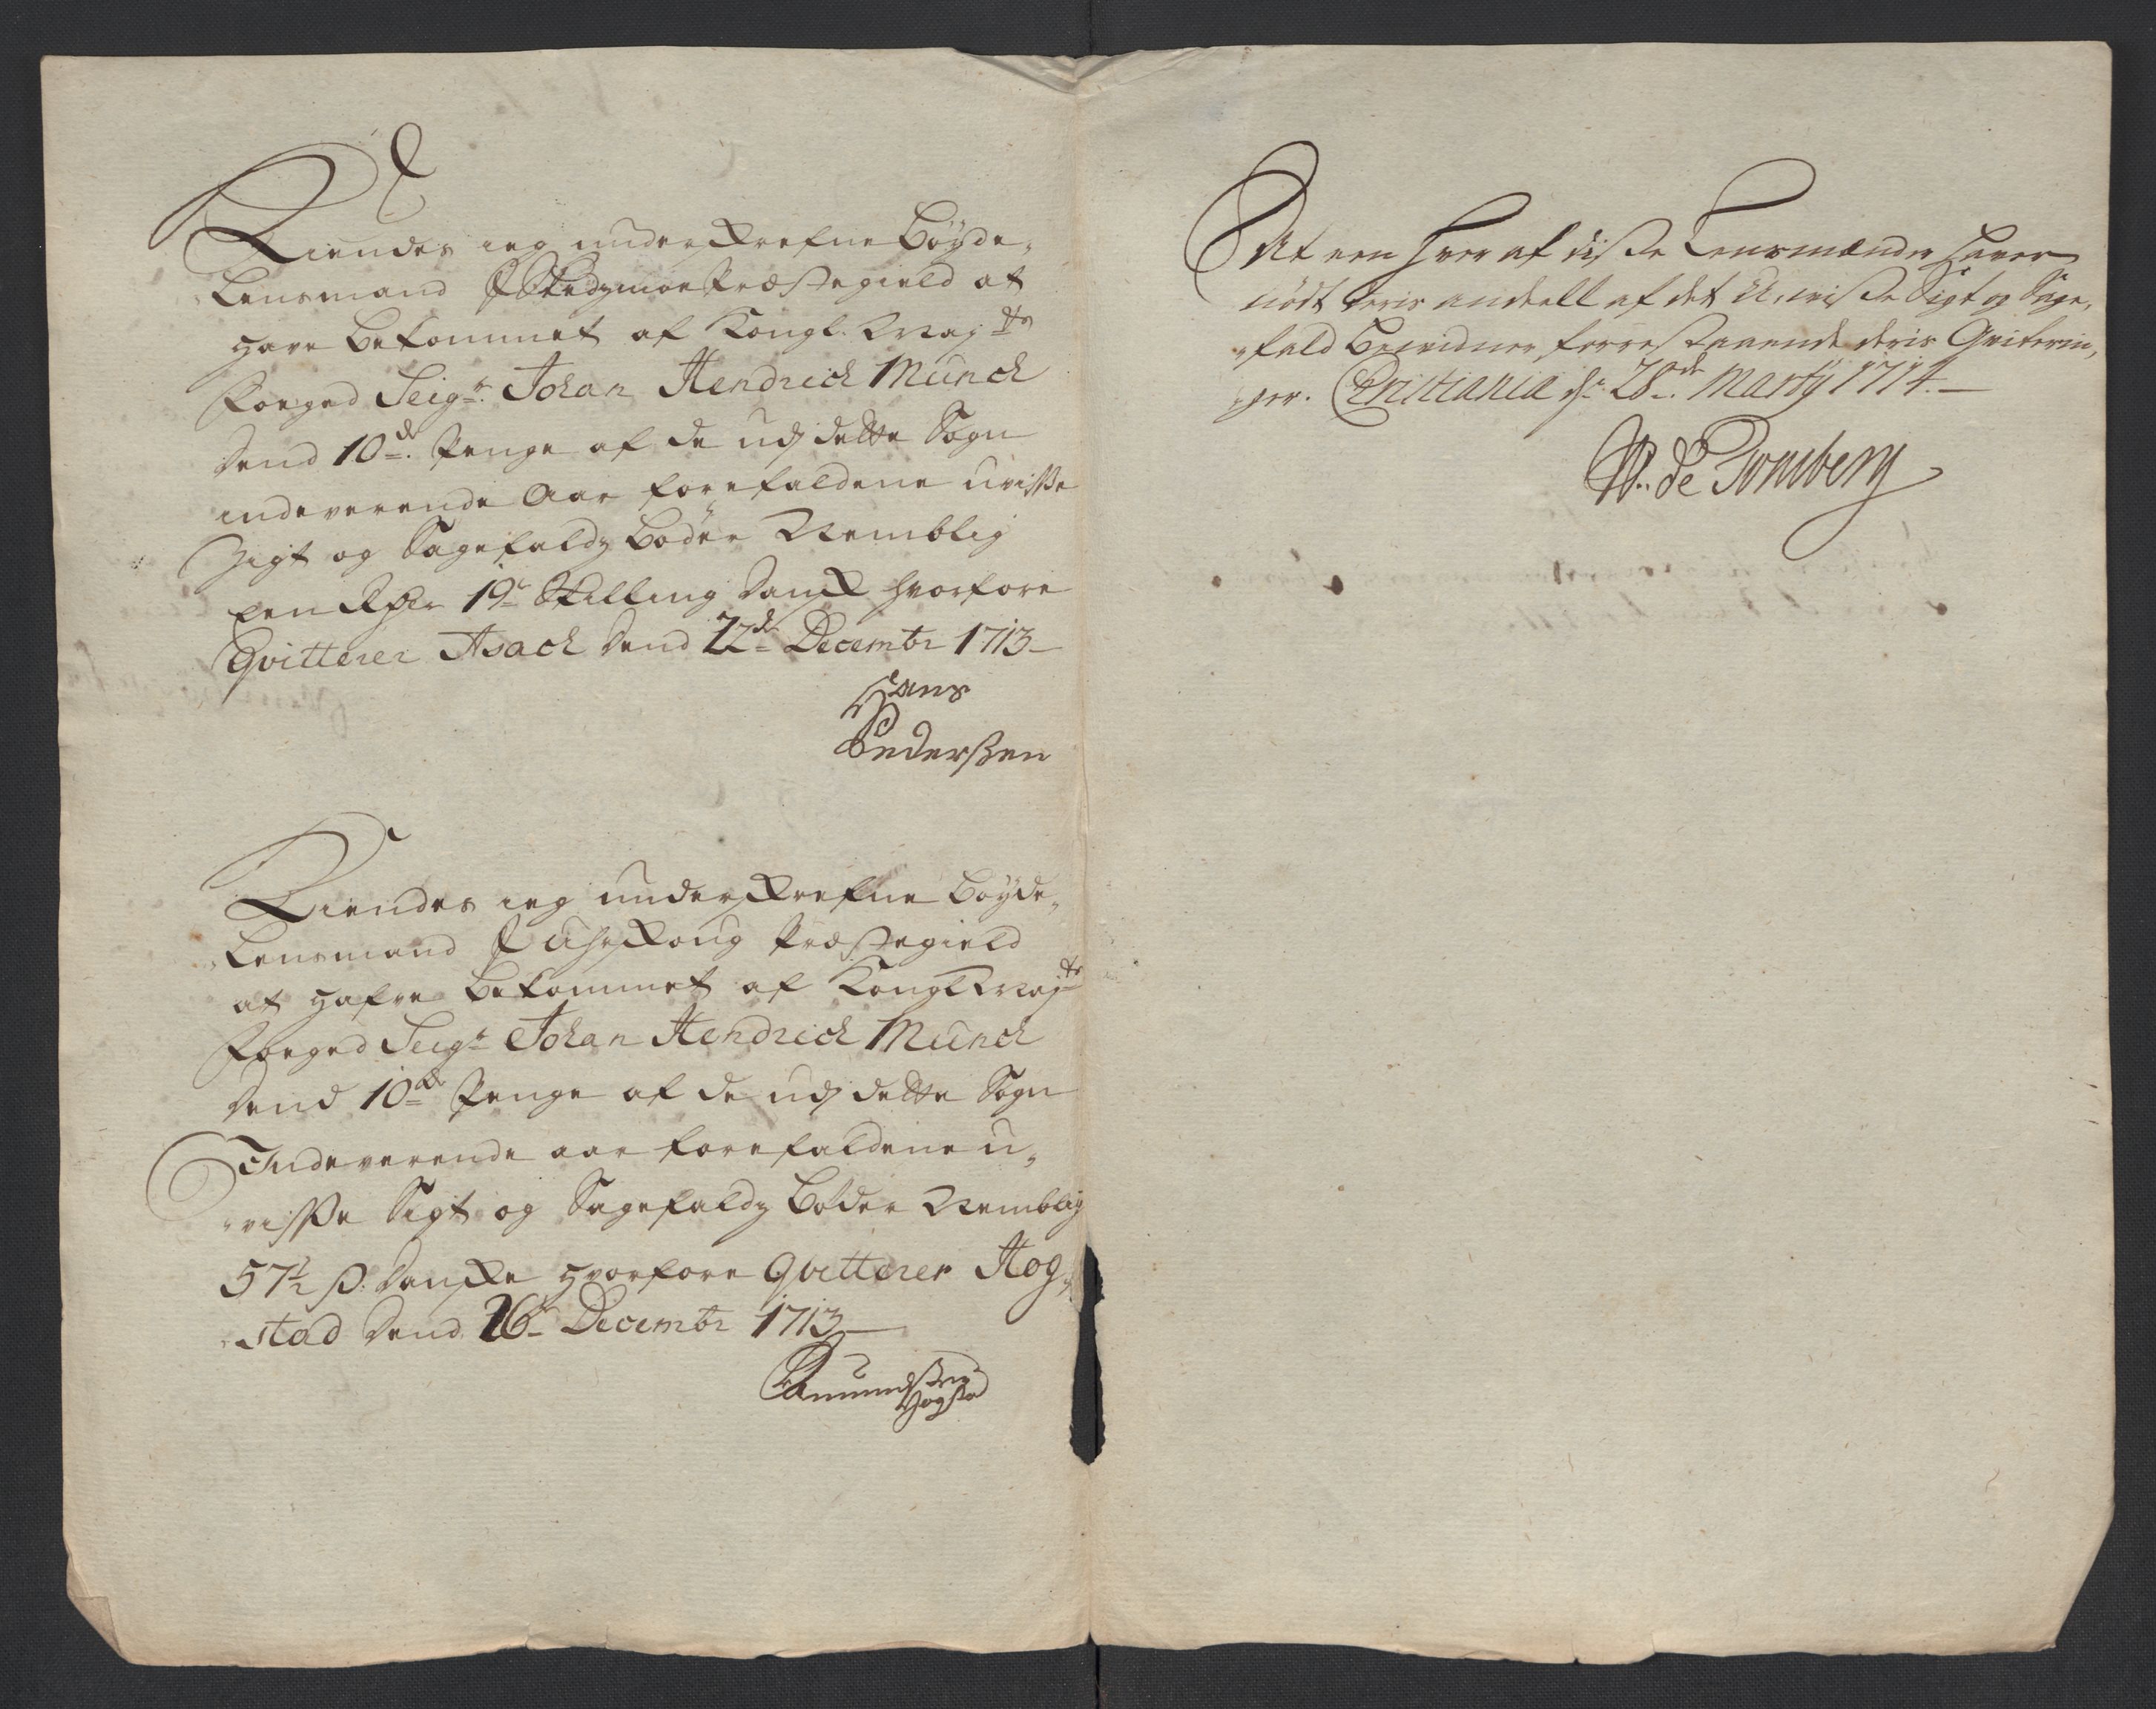 Kiendes ieg underskrefne Böyde„
„Lensmand I Skedzmoe Præstegield at
have bekommet af Kongl. May.ts
Foeged Seig.r Johan Hendrich Münch
dend 10.de Penge af de udj dette Sogn
indeverende Aar forefaldene uvisse
Sigt og Sagefaldz Böder Nemblig
een Rdr 19 Skilling Dansk hvorfore
Qvitterer Asach dend 22.de Decembr 1713
Hans
Pederßen
Kiendes ieg underskrefne Böyde„
„Lensmand I Uhrskoug Præstegield
at hafve bekommet af Kongl May.ts
Foeged Seig.r Johan Hendrich Münch
dend 10.de Penge af de udj dette Sogn
Indeverende aar forefaldene u„
„visse Sigt og Sagefaldz Böder Nemblig
57½ ß. Danske hvorfore Qvitterer Hog„
„stad dend 16 Decembr 1713
Amund
Hogstad
At een hver af disse Lensmænder haver
nödt deris andeell af det U,visse Sigt og Sage„
„fald bevidner forrestaaende deris Qviterin„
„ger. Christiania d. 28.de Martij 1714.
W. de Tonsberg